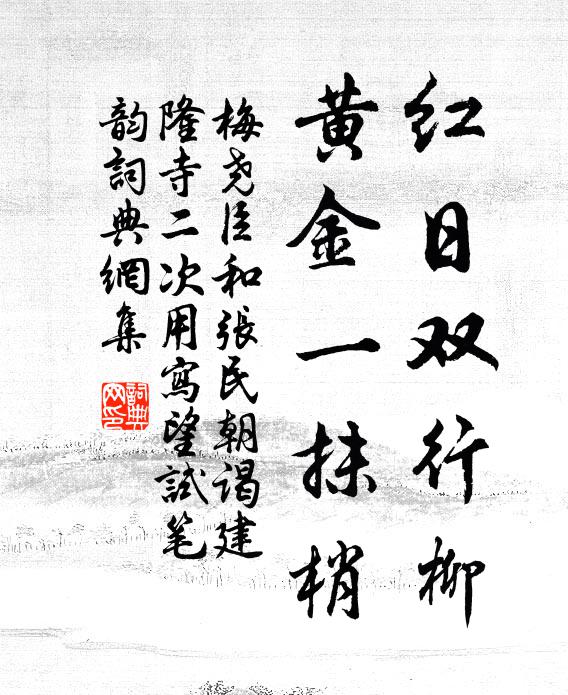 红日双行柳
黄金一抹梢
梅尧臣和张民朝谒建
隆寺二次用写望试笔
韵词典网集
詞典网印